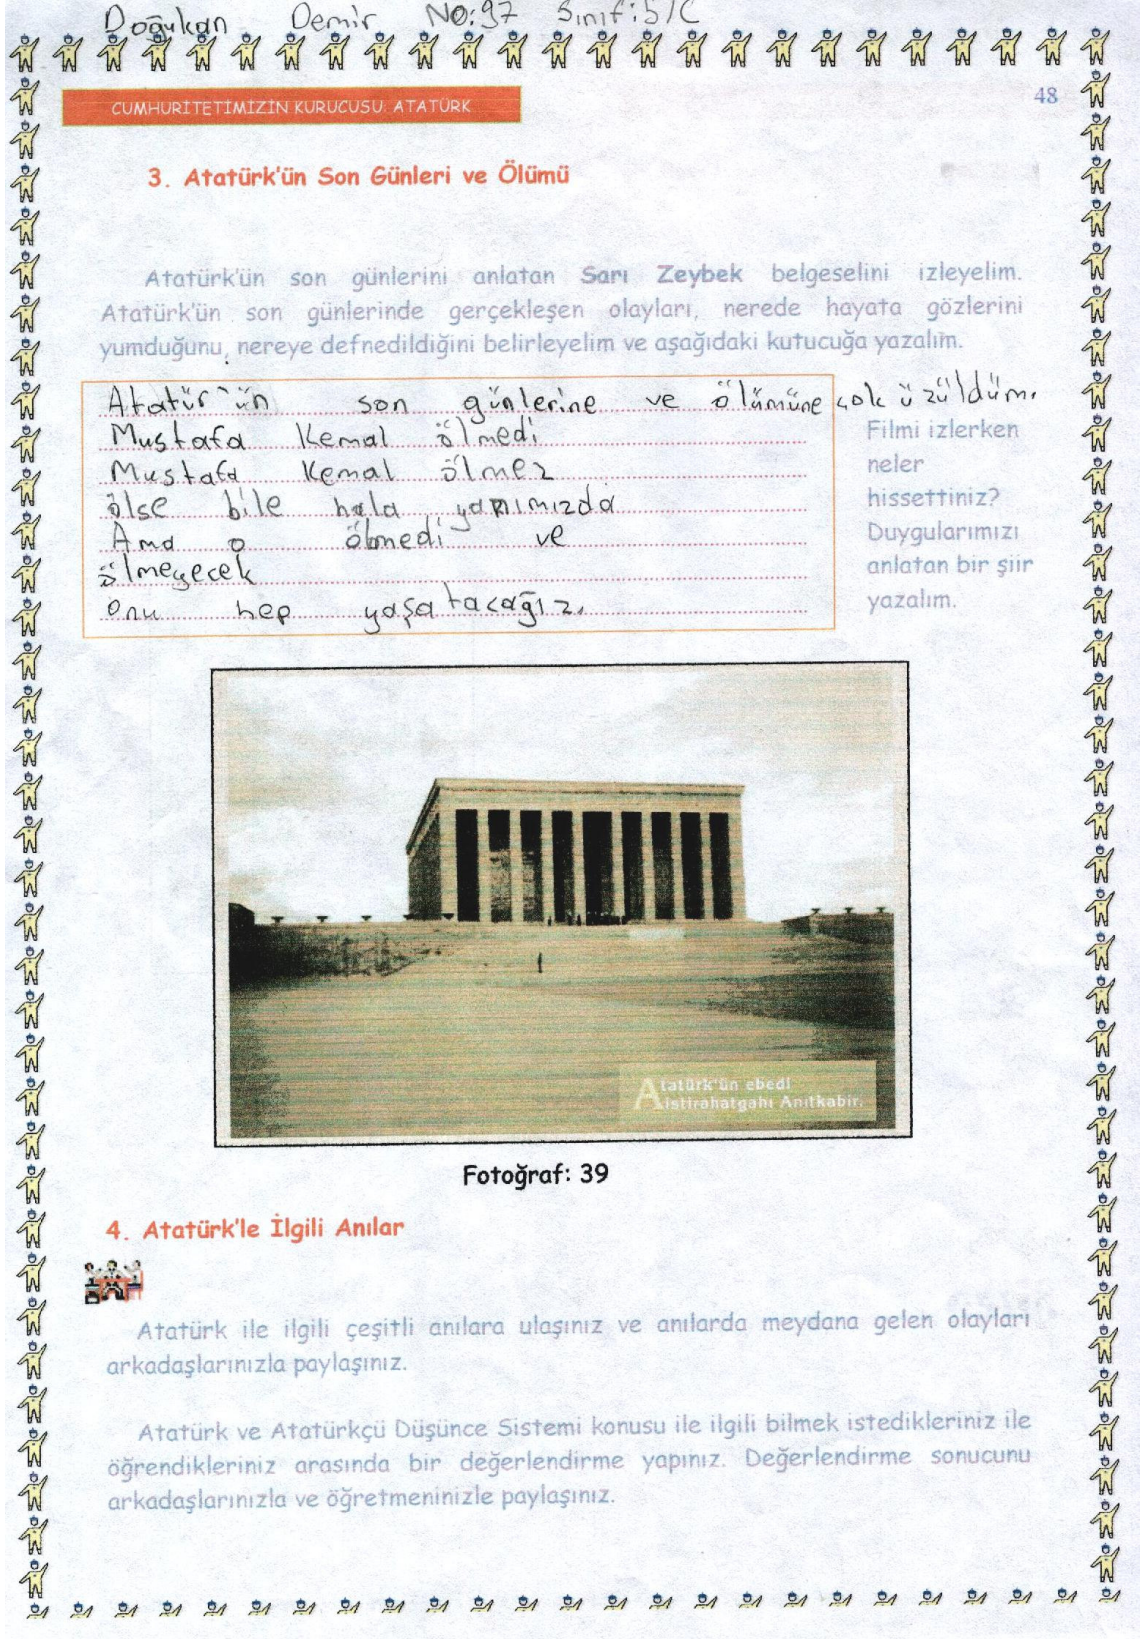 Doğukan Demir No:97 Sınıf:5/C
CUMHURİTETİMİZİN KURUCUSU: ATATÜRK
48
3. Atatürk'ün Son Günleri ve Ölümü
Atatürk'ün son günlerini anlatan Sarı Zeybek belgeselini izleyelim.
Atatürk'ün son günlerinde gerçekleşen olayları, nerede hayata gözlerini
yumduğunu, nereye defnedildiğini belirleyelim ve aşağıdaki kutucuğa yazalım.
Atatür'ün son günlerine ve ölümüne çok üzüldüm.
Mustafa Kemal ölmedi
Mustafa Kemal ölmez
ölse bile hala yanımızda
Ama o ölmedi ve
ölmeyecek
onu hep yaşatacağız.
Filmi izlerken
neler
hissettiniz?
Duygularımızı
anlatan bir şiir
yazalım.
Atatürk'ün ebedi
istirahatgahı Anıtkabir.
Fotoğraf: 39
4. Atatürk'le İlgili Anılar
Atatürk ile ilgili çeşitli anılara ulaşınız ve anılarda meydana gelen olayları
arkadaşlarınızla paylaşınız.
Atatürk ve Atatürkçü Düşünce Sistemi konusu ile ilgili bilmek istedikleriniz ile
öğrendikleriniz arasında bir değerlendirme yapınız. Değerlendirme sonucunu
arkadaşlarınızla ve öğretmeninizle paylaşınız.